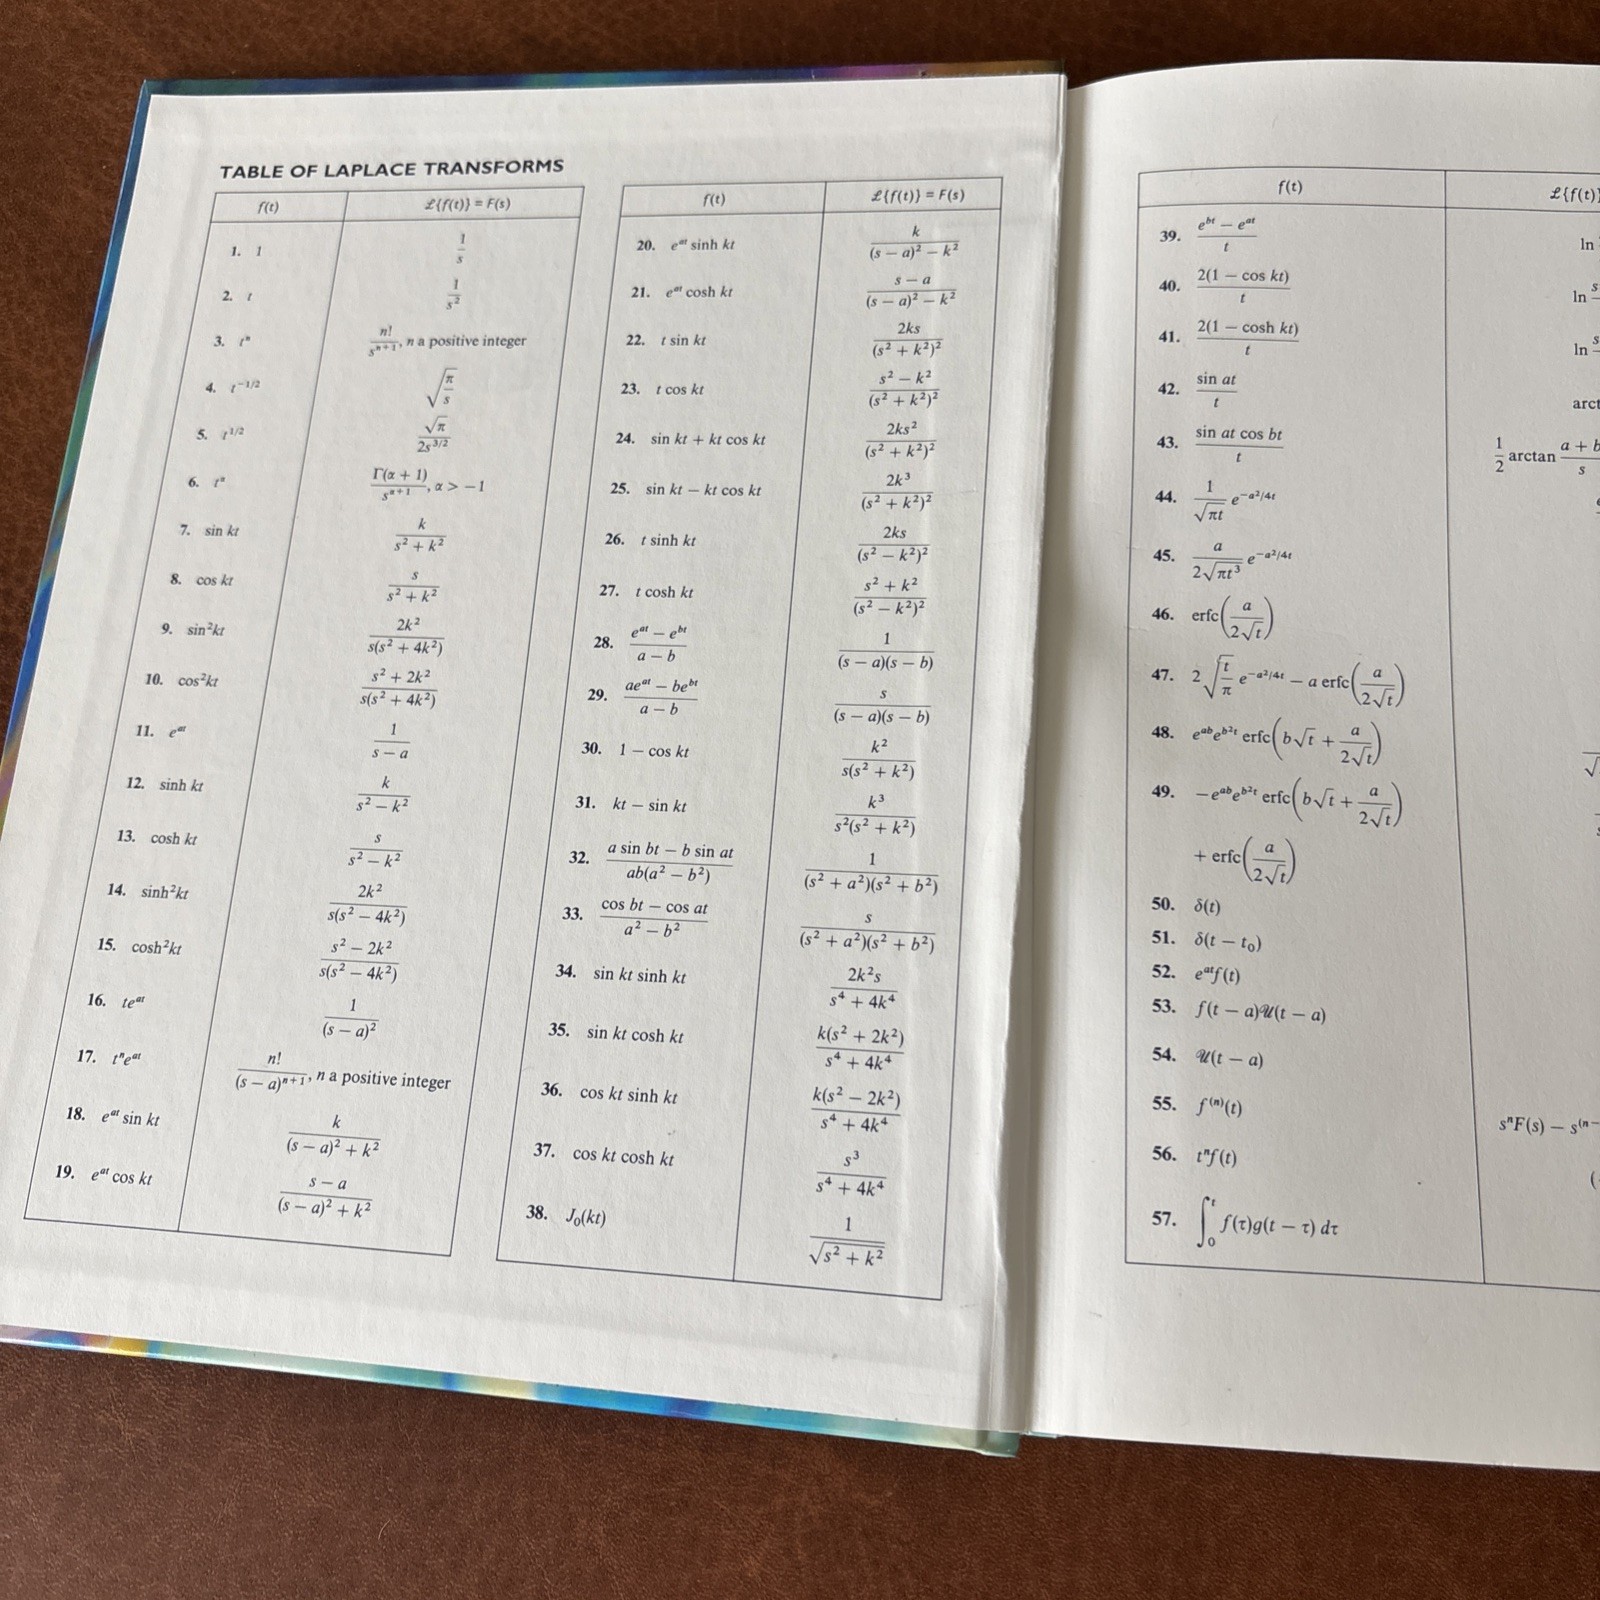 TABLE OF LAPLACE TRANSFORMS
f(t) ℒ{f(t)} = F(s)
1. 1 1/s
2. t 1/s²
3. tⁿ n!/sⁿ⁺¹, n a positive integer
4. t^(−1/2) √(π/s)
5. t^(1/2) √π/(2s^(3/2))
6. t^α Γ(α + 1)/s^(α+1), α > −1
7. sin kt k/(s² + k²)
8. cos kt s/(s² + k²)
9. sin²kt 2k²/(s(s² + 4k²))
10. cos²kt (s² + 2k²)/(s(s² + 4k²))
11. e^(at) 1/(s − a)
12. sinh kt k/(s² − k²)
13. cosh kt s/(s² − k²)
14. sinh²kt 2k²/(s(s² − 4k²))
15. cosh²kt (s² − 2k²)/(s(s² − 4k²))
16. te^(at) 1/(s − a)²
17. tⁿe^(at) n!/(s − a)ⁿ⁺¹, n a positive integer
18. e^(at) sin kt k/((s − a)² + k²)
19. e^(at) cos kt (s − a)/((s − a)² + k²)
f(t) ℒ{f(t)} = F(s)
20. e^(at) sinh kt k/((s − a)² − k²)
21. e^(at) cosh kt (s − a)/((s − a)² − k²)
22. t sin kt 2ks/(s² + k²)²
23. t cos kt (s² − k²)/(s² + k²)²
24. sin kt + kt cos kt 2ks²/(s² + k²)²
25. sin kt − kt cos kt 2k³/(s² + k²)²
26. t sinh kt 2ks/(s² − k²)²
27. t cosh kt (s² + k²)/(s² − k²)²
28. (e^(at) − e^(bt))/(a − b) 1/((s − a)(s − b))
29. (ae^(at) − be^(bt))/(a − b) s/((s − a)(s − b))
30. 1 − cos kt k²/(s(s² + k²))
31. kt − sin kt k³/(s²(s² + k²))
32. (a sin bt − b sin at)/(ab(a² − b²)) 1/((s² + a²)(s² + b²))
33. (cos bt − cos at)/(a² − b²) s/((s² + a²)(s² + b²))
34. sin kt sinh kt 2k²s/(s⁴ + 4k⁴)
35. sin kt cosh kt k(s² + 2k²)/(s⁴ + 4k⁴)
36. cos kt sinh kt k(s² − 2k²)/(s⁴ + 4k⁴)
37. cos kt cosh kt s³/(s⁴ + 4k⁴)
38. J₀(kt) 1/√(s² + k²)
f(t) ℒ{f(t)}
39. (e^(bt) − e^(at))/t ln
40. 2(1 − cos kt)/t ln s
41. 2(1 − cosh kt)/t ln s
42. sin at/t arct
43. sin at cos bt/t 1/2 arctan (a + b/s
44. 1/√(πt) e^(−a²/4t)
45. a/(2√(πt³)) e^(−a²/4t)
46. erfc(a/(2√t))
47. 2√(t/π) e^(−a²/4t) − a erfc(a/(2√t))
48. e^(ab)e^(b²t) erfc(b√t + a/(2√t))
49. −e^(ab)e^(b²t) erfc(b√t + a/(2√t))
+ erfc(a/(2√t))
50. δ(t)
51. δ(t − t₀)
52. e^(at)f(t)
53. f(t − a)𝒰(t − a)
54. 𝒰(t − a)
55. f⁽ⁿ⁾(t) sⁿF(s) − s⁽ⁿ⁻
56. tⁿf(t) (
57. ∫₀ᵗ f(τ)g(t − τ) dτ